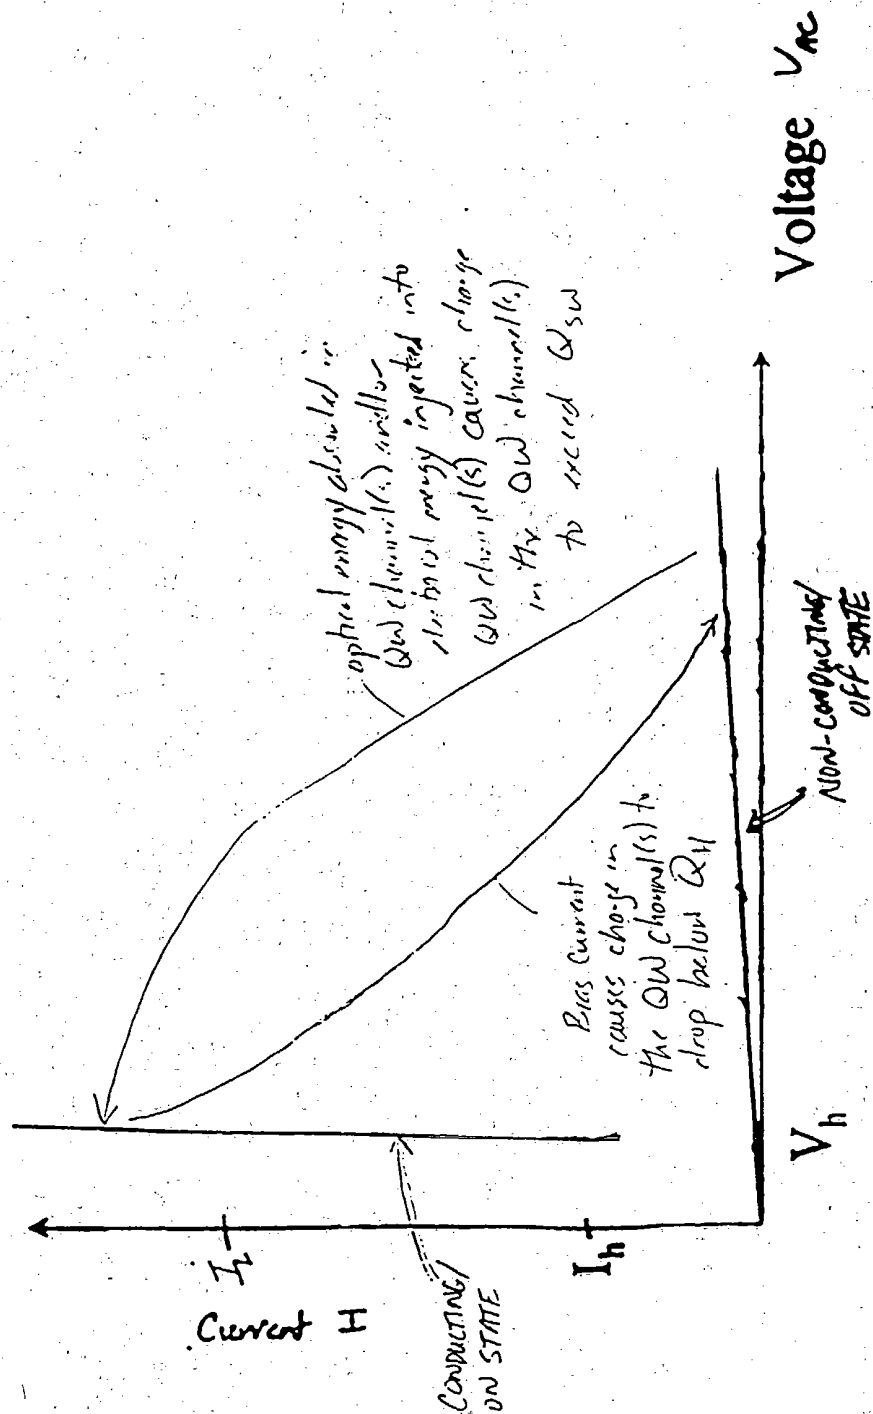 Current I
I_L
I_h
CONDUCTING/
ON STATE
optical energy absorbed in
QW channel(s) and/or
electrical energy injected into
QW channel(s) causes charge
in the QW channel(s)
to exceed Q_SW
Bias Current
causes charge in
the QW channel(s) to
drop below Q_H
NON-CONDUCTING/
OFF STATE
V_h
Voltage V_AC